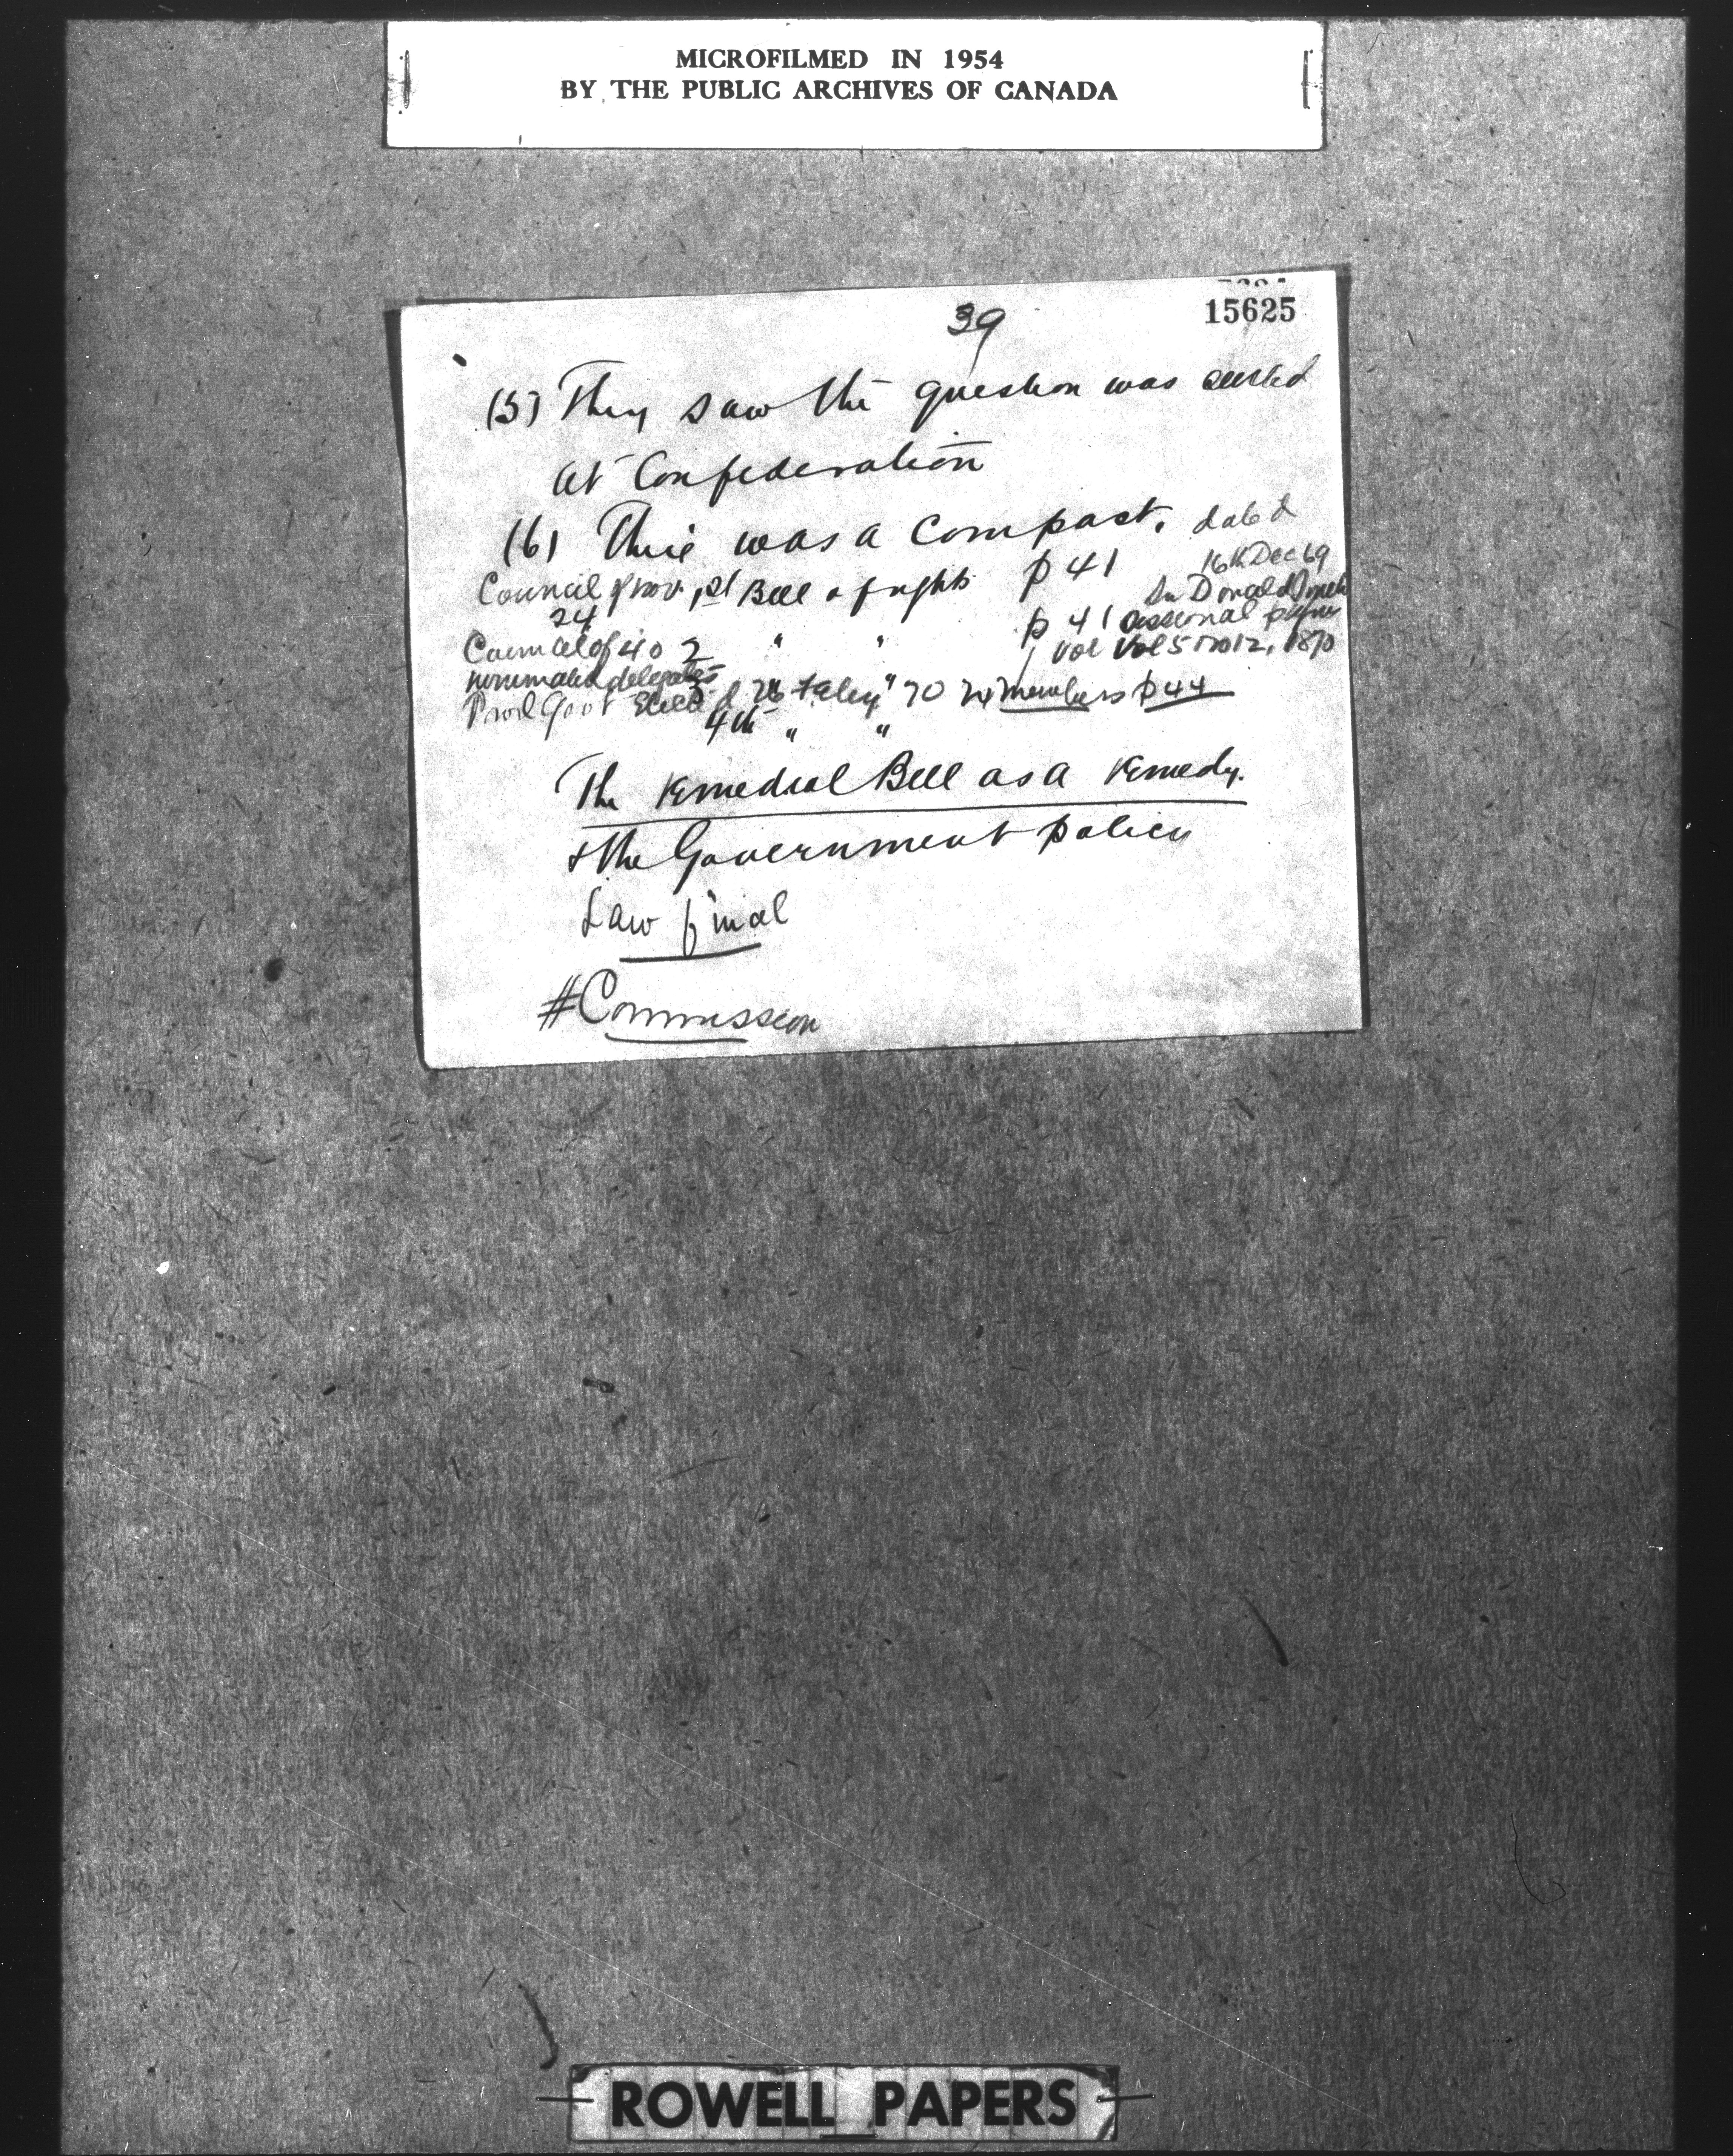 MICROFILMED IN 1954
BY THE PUBLIC ARCHIVES OF CANADA
39
15625
(5) They saw the question was settled
at Confederation
(6) This was a compact. dated
Council prov. 1st Bill of rights p 41 16th Dec 69
24 Sir Donald Smith
Council of 40 2 " " p 41 sessional papers
Vol Vol 5 No 12, 1870
nominated delegates
Provl Govt Elected 3d 26 Feby " 70 24 members p 44
4th " "
The Remedial Bill as a Remedy.
& the Government policy
Law final
#Commission
ROWELL PAPERS